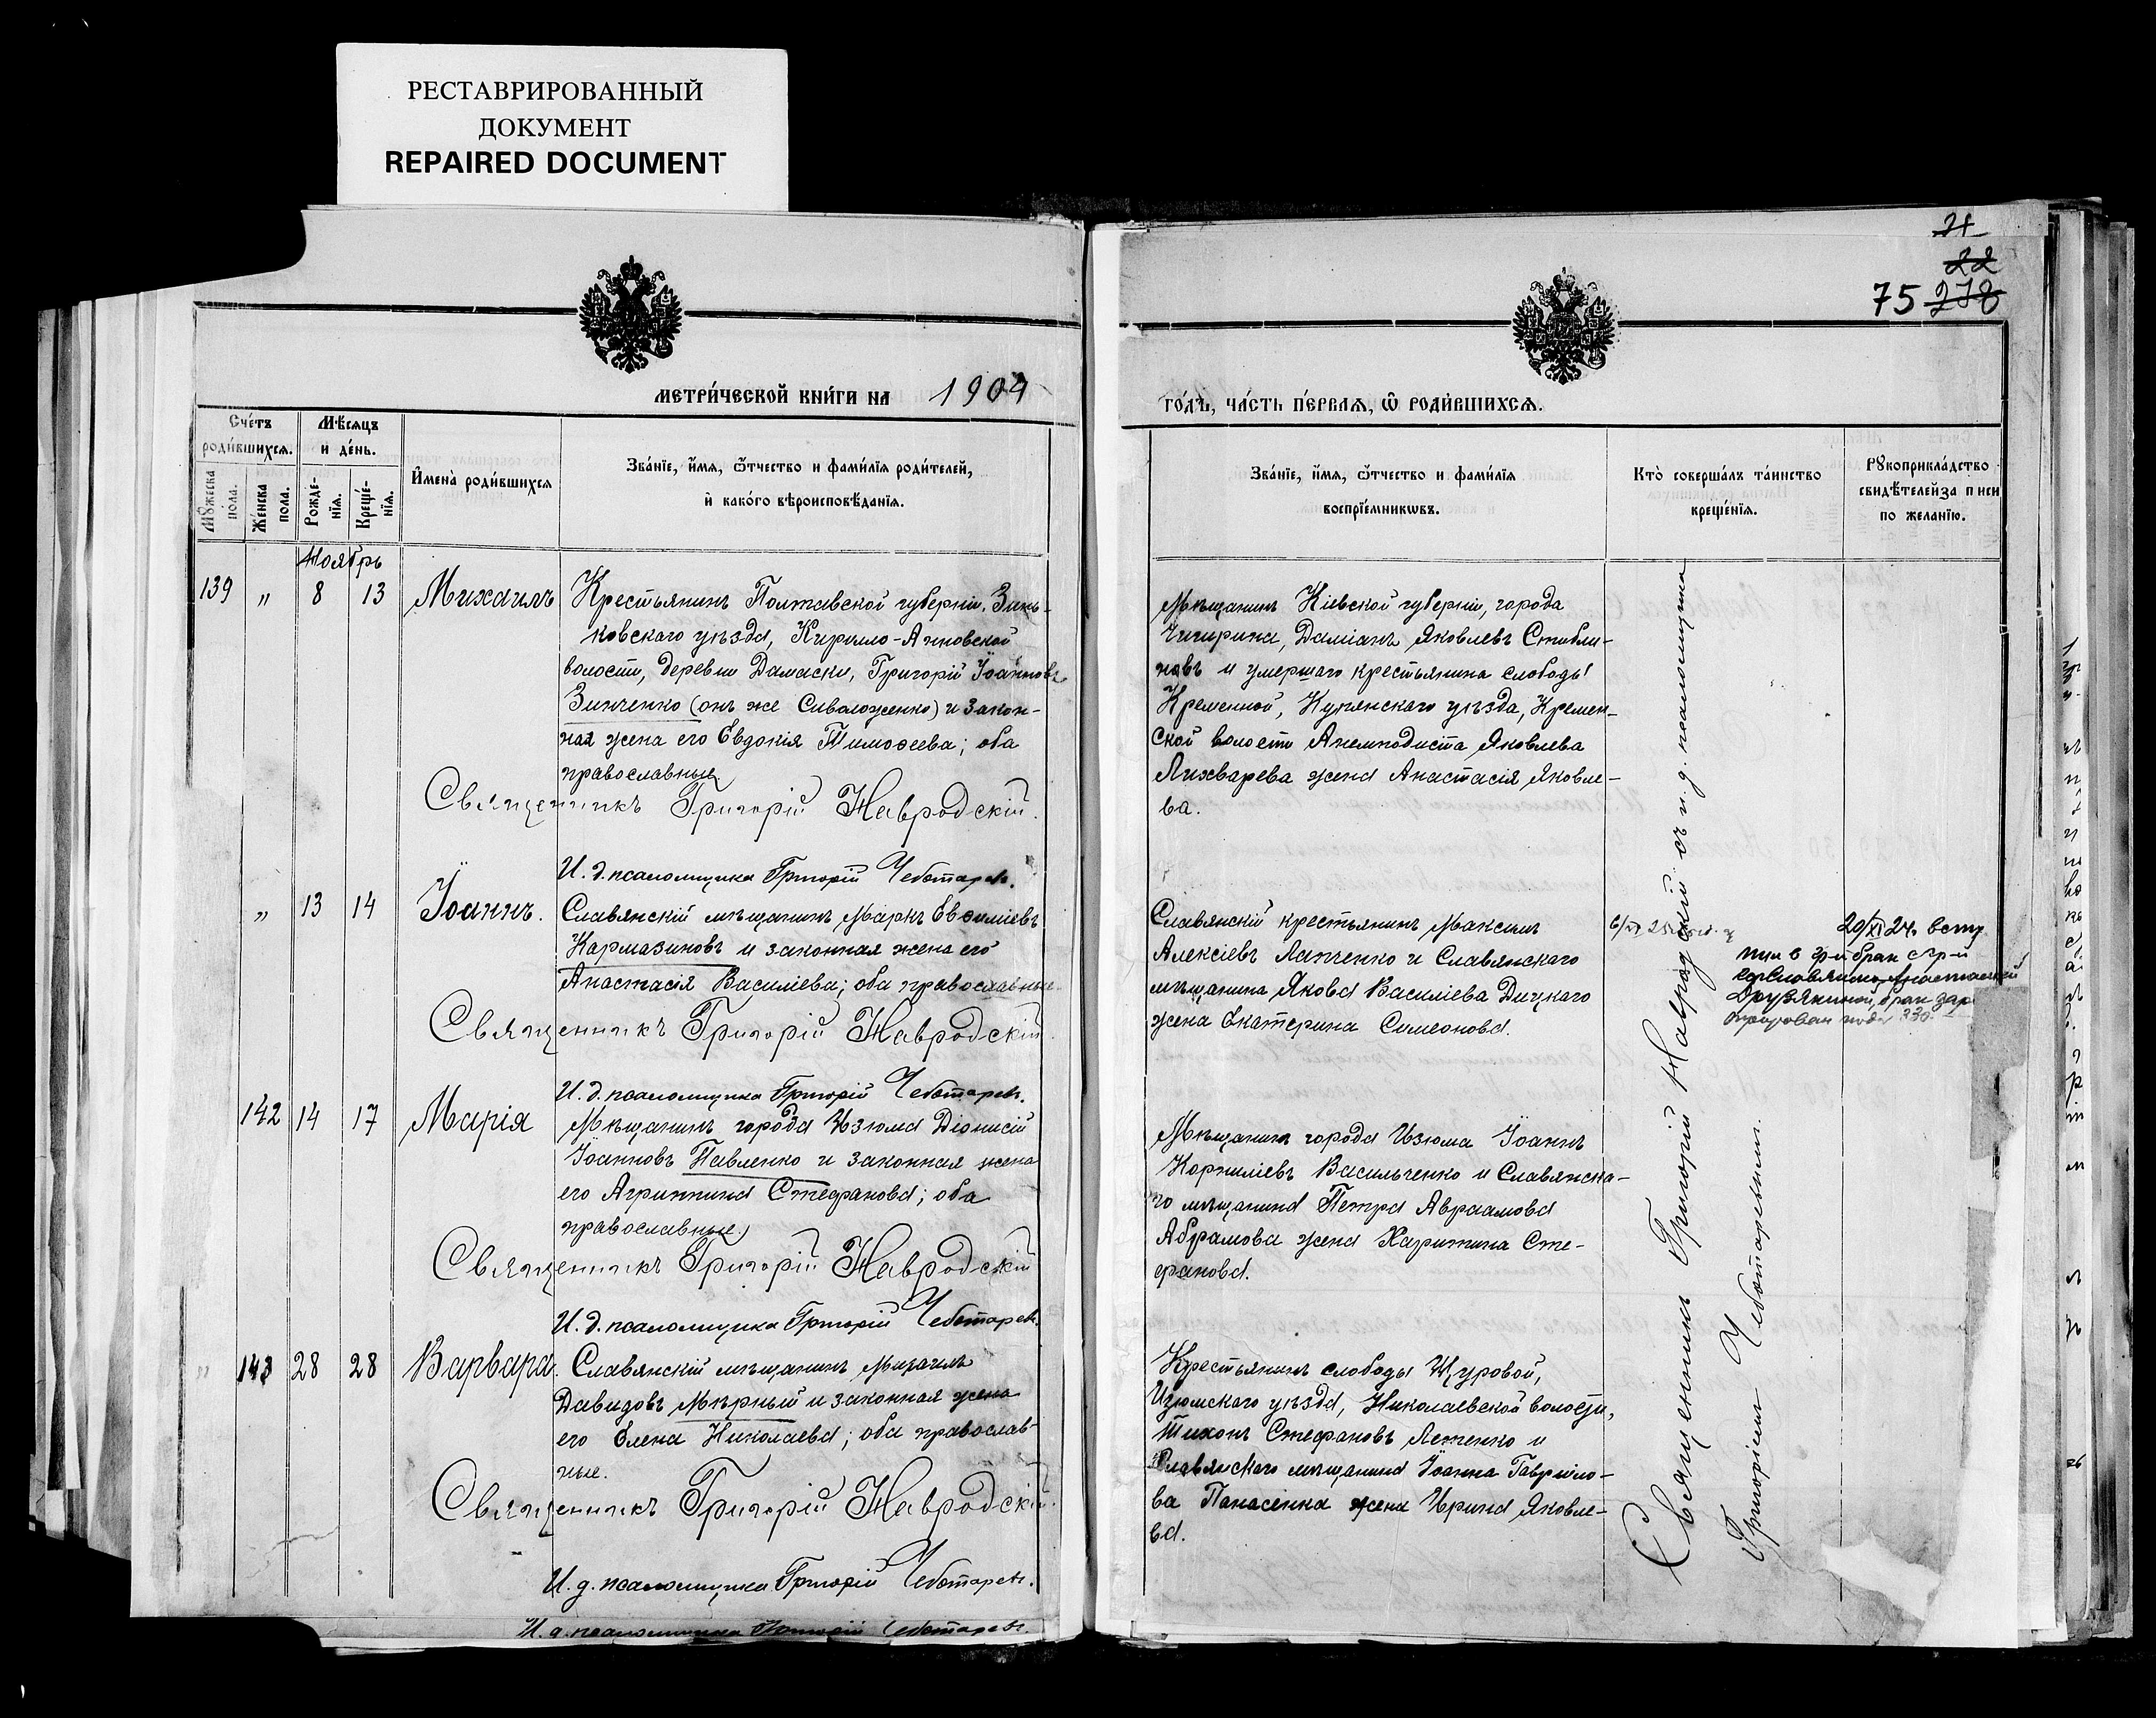 РЕСТАВРИРОВАННЫЙ
ДОКУМЕНТ
REPAIRED DOCUMENT
21
22
75 278
МЕТРИ́ЧЕСКОЙ КНИ́ГИ НА 1904
ГО́ДЪ, ЧА́СТЬ ПЕ́РВАѦ, Ѿ РОДИ́ВШИХСѦ.
Сче́тъ роди́вшихсѧ.
Мꙋ́жеска пола.
Же́нска пола.
Мѣ́сяцъ и де́нь.
Рожде́нїѧ.
Креще́нїѧ.
И҆мена̀ роди́вшихсѧ
Зва́нїе, и҆́мѧ, ѻ҆́тчество и фами́лїѧ роди́телей,
и҆ како́го вѣроисповѣ́данїѧ.
Зва́нїе, и҆́мѧ, ѻ҆́тчество и фами́лїѧ
воспрїе́мникѡвъ.
Кто̀ соверша́лъ та́инство
креще́нїѧ.
Рꙋкоприкла́дство
свидѣ́телей за п иси
по жела́нїю.
Ноябрь
139 " 8 13 Михаилъ
Крестьянинъ Полтавской губерніи, Зинь-
ковскаго уѣзда, Кирилло-Анновской
волости, деревни Дамаски, Григорій Іоанновъ
Зинченко (онъ же Сиволоженко) и закон-
ная жена его Евдокія Тимоѳеева; оба
православные
Священникъ Григорій Навродскій.
И. д. псаломщика Григорій Чеботаревъ.
Мѣщанинъ Кіевской губерніи, города
Чигирина, Даміанъ Яковлевъ Стибли-
новъ и умершаго крестьянина слободы
Кременной, Купянскаго уѣзда, Кремен-
ской волости Анемподиста Яковлева
Лихварева жена Анастасія Яковле-
ва.
" 13 14 Іоаннъ.
Славянскій мѣщанинъ Маркъ Евсиліевъ
Кармазиновъ и законная жена его
Анастасія Василіева; оба православные.
Священникъ Григорій Навродскій.
И. д. псаломщика Григорій Чеботаревъ.
Славянскій крестьянинъ Максимъ
Алексіевъ Лапченко и Славянского
мѣщанина Якова Василіева Дицкаго
жена Екатерина Симеонова.
20/XI 24. всту
пил в 3-й брак с гр-й
гор. Славянска Анастасией
Друзякиной, брак зар
142 14 17 Марія
Мѣщанинъ города Изюма Діонисій
Іоанновъ Павленко и законная жена
его Агриппина Стефанова; оба
православные.
Священникъ Григорій Навродскій
И. д. псаломщика Григорій Чеботаревъ.
Мѣщанинъ города Изюма Іоаннъ
Корниліевъ Васильченко и Славянска-
го мѣщанина Петра Авраамова
Абрамова жена Харитина Сте-
фанова.
143 28 28 Варвара.
Славянскій мѣщанинъ Михаилъ
Давидовъ Мѣрный и законная жена
его Елена Николаева; оба православ-
ные.
Священникъ Григорій Навродскій.
И. д. псаломщика Григорій Чеботаревъ.
Крестьянинъ слободы Щуровой,
Изюмскаго уѣзда, Николаевской волости,
Тихонъ Стефановъ Летенко и
Славянскаго мѣщанина Іоанна Гавріило-
ва Панасенка жена Ирина Яковле-
ва.
Священникъ Григорій Навродскій съ и. д. псаломщика
Григоріемъ Чеботаревымъ.
И. д. псаломщика Григорій Чеботаревъ.